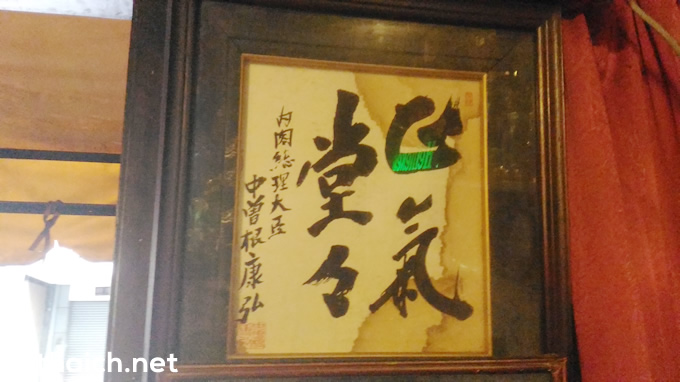 正氣
堂々
内閣総理大臣
中曽根康弘